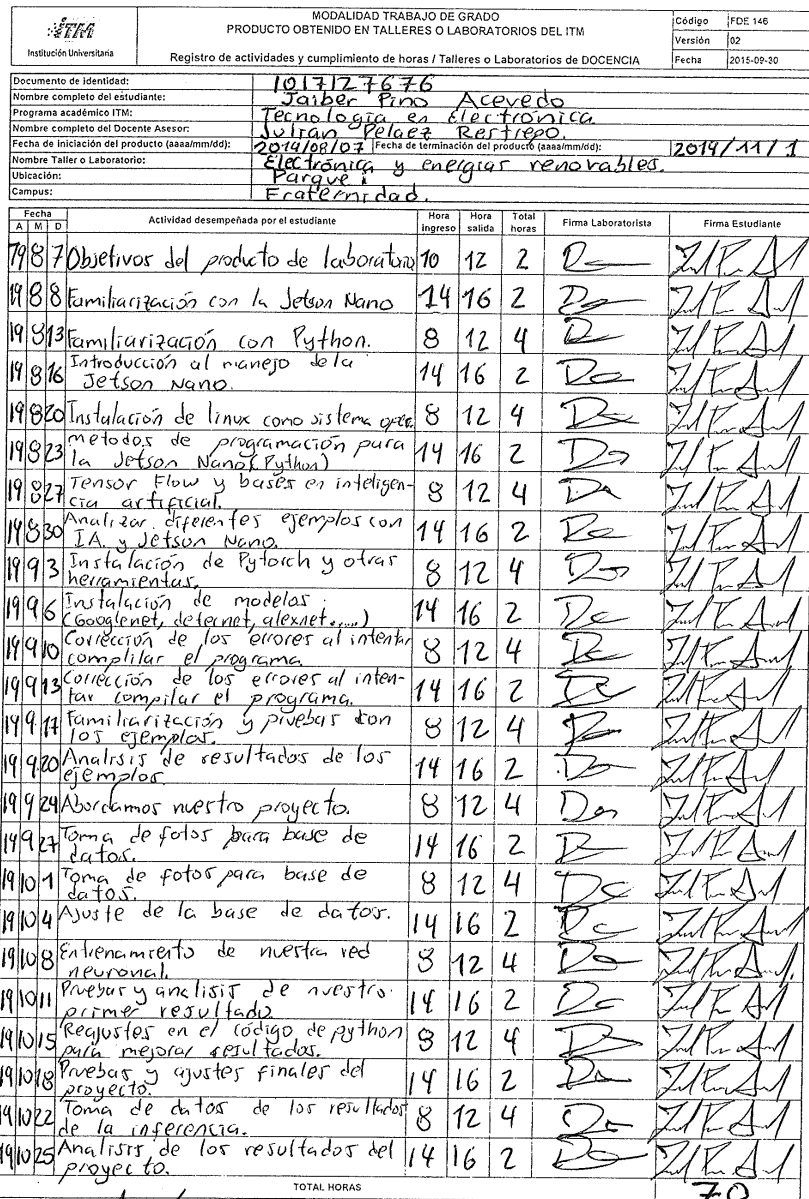 ITM
Institución Universitaria
MODALIDAD TRABAJO DE GRADO
PRODUCTO OBTENIDO EN TALLERES O LABORATORIOS DEL ITM
Registro de actividades y cumplimiento de horas / Talleres o Laboratorios de DOCENCIA
Código FDE 146
Versión 02
Fecha 2015-09-30
Documento de identidad: 1017127676
Nombre completo del estudiante: Jaiber Pino Acevedo
Programa académico ITM: Tecnología en Electrónica
Nombre completo del Docente Asesor: Julian Pelaez Restrepo.
Fecha de iniciación del producto (aaaa/mm/dd): 2019/08/07 Fecha de terminación del producto (aaaa/mm/dd): 2019/11/1
Nombre Taller o Laboratorio: Electrónica y energias renovables.
Ubicación: Parque i
Campus: Fraternidad.
Fecha
A M D Actividad desempeñada por el estudiante Hora ingreso Hora salida Total horas Firma Laboratorista Firma Estudiante
19 8 7 Objetivos del producto de laboratorio 10 12 2
19 8 8 Familiarización con la Jetson Nano 14 16 2
19 8 13 Familiarización con Python. 8 12 4
19 8 16 Introducción al manejo de la
Jetson Nano. 14 16 2
19 8 20 Instalación de linux como sistema 8 12 4
19 8 23 metodos de programación para
la Jetson Nano (Python) 14 16 2
19 8 27 Tensor Flow y bases en inteligen-
cia artificial. 8 12 4
19 8 30 Analizar diferentes ejemplos con
IA. y Jetson Nano. 14 16 2
19 9 3 Instalación de Pytorch y otras
herramientas. 8 12 4
19 9 6 Instalación de modelos
(Googlenet, deternet, alexnet.....) 14 16 2
19 9 10 Corrección de los errores al intentar
complilar el programa. 8 12 4
19 9 13 Corrección de los errores al inten-
tar compilar el programa. 14 16 2
19 9 17 Familiarización y pruebas con
los ejemplos. 8 12 4
19 9 20 Analisis de resultados de los
ejemplos 14 16 2
19 9 24 Abordamos nuestro proyecto. 8 12 4
19 9 27 Toma de fotos para base de
datos. 14 16 2
19 10 1 Toma de fotos para base de
datos. 8 12 4
19 10 4 Ajuste de la base de datos. 14 16 2
19 10 8 Entrenamiento de nuestra red
neuronal. 8 12 4
19 10 11 Pruebas y analisis de nuestro
primer resultado 14 16 2
19 10 15 Reajustes en el código de python
para mejorar resultados. 8 12 4
19 10 18 Pruebas y ajustes finales del
proyecto. 14 16 2
19 10 22 Toma de datos de los resultados
de la inferencia. 8 12 4
19 10 25 Analisis de los resultados del
proyecto. 14 16 2
TOTAL HORAS 70